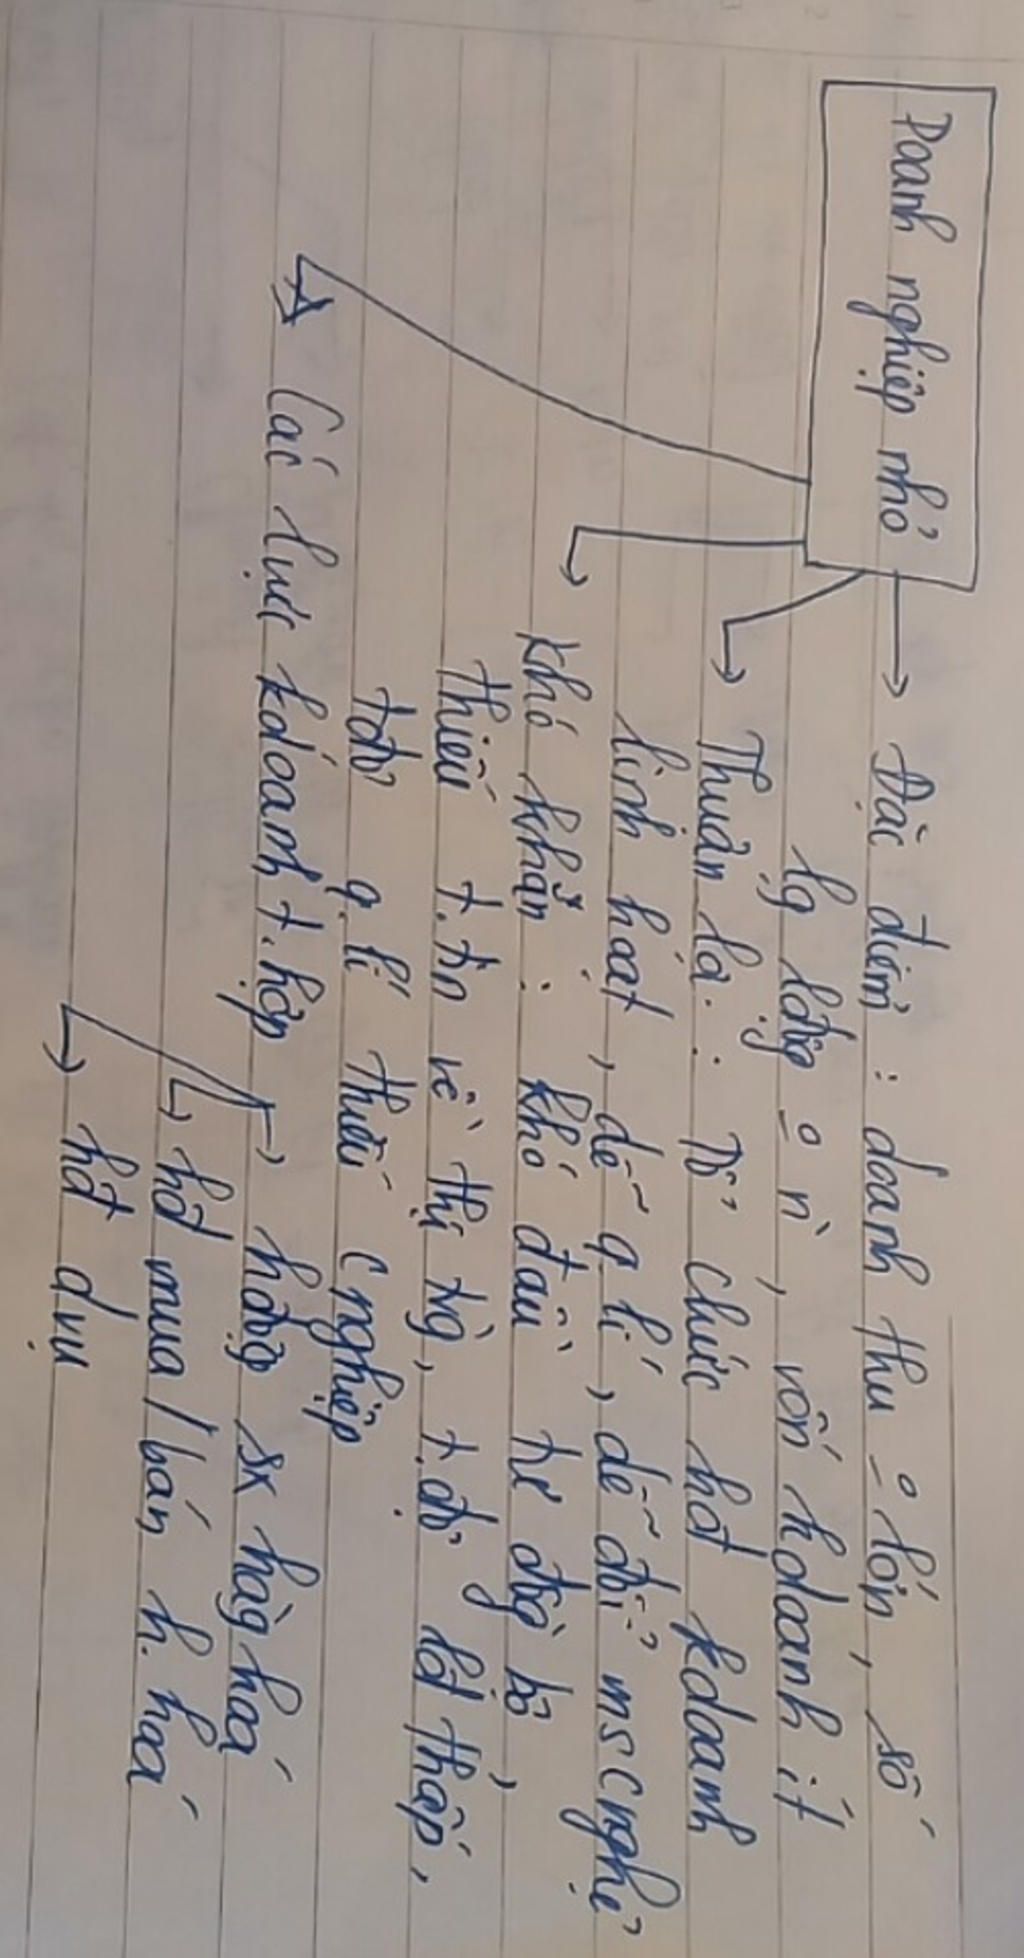 Doanh nghiệp nhỏ → Đặc điểm : doanh thu ō lớn, số
lg lđộg ō n`, vốn kdoanh ít
→ Thuận lợi : Tổ chức hđ kdoanh
linh hoạt, dễ q.lí, dễ đổi ms cnghệ
→ khó khăn : khó đầu tư đồg bộ,
thiếu t.tin về thị tg`, t.độ lđ thấp,
tđộ q.lí thiếu c nghiệp
→ Các lvực kdoanh t.hợp → hđộg sx hàg hoá
→ hđ mua / bán h.hoá
→ hđ dvụ